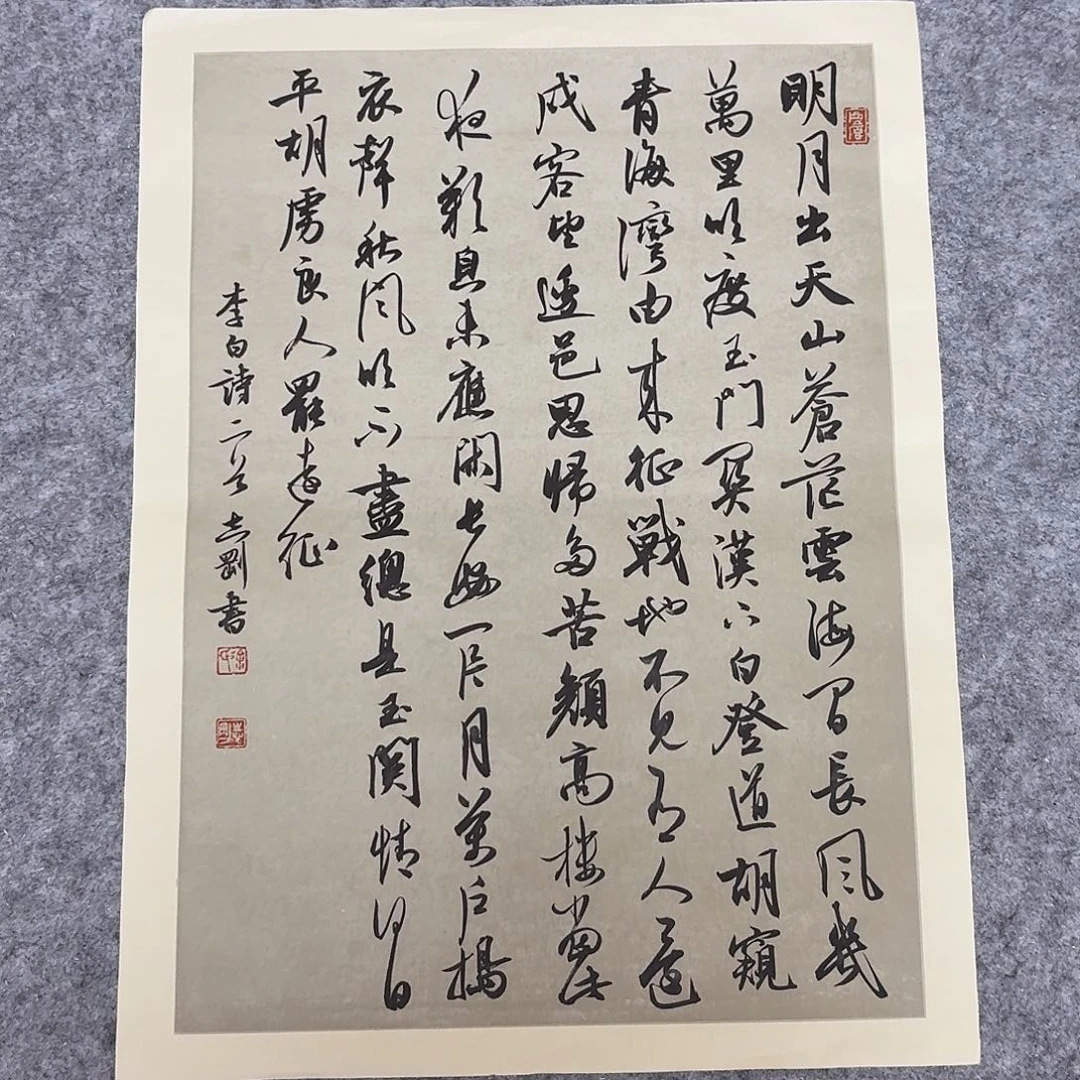 明月出天山蒼茫雲海間長風幾
萬里吹度玉門關漢下白登道胡窺
青海灣由來征戰地不見有人還
戍客望邊邑思歸多苦顏高樓當此
夜歎息未應閑長安一片月萬戶搗
衣聲秋風吹不盡總是玉關情何日
平胡虜良人罷遠征
李白詩二首 書